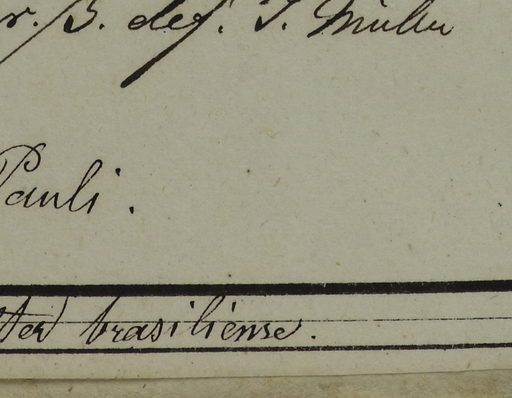 r. B. def. F. Müller
Pauli.
Iter brasiliense.